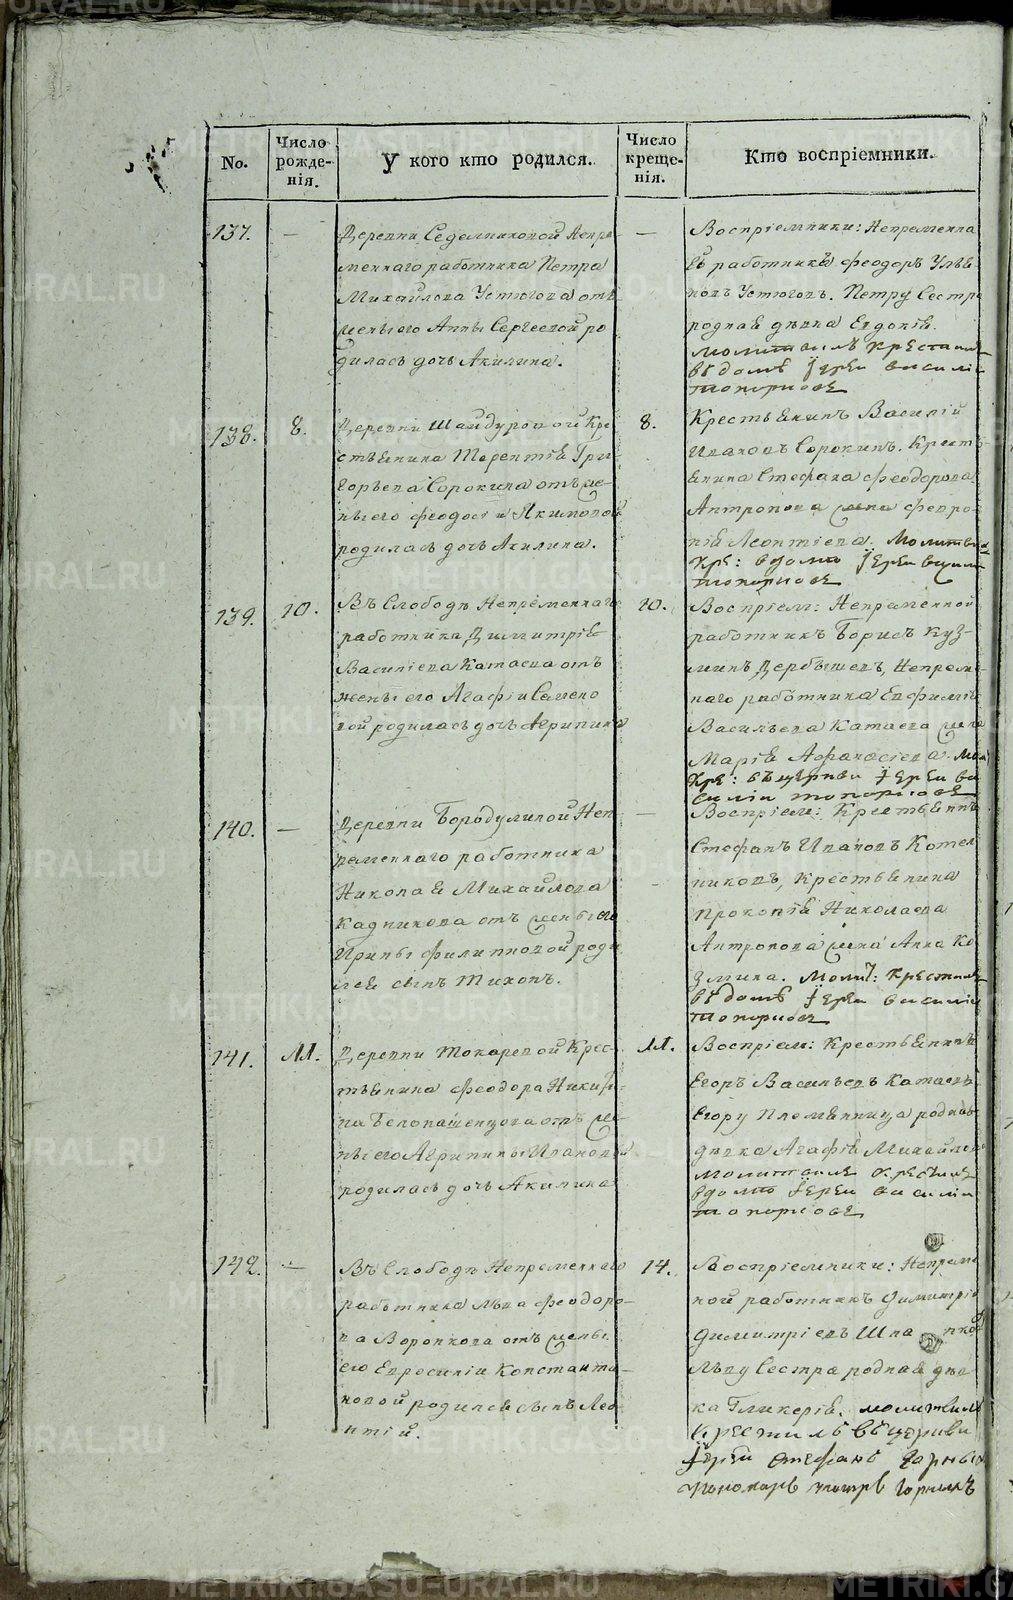 No.
Число рожде-
нія.
У кого кто родился.
Число креще-
нія.
Кто воспріемники.
137. —
Деревни Седельниковой Непре
меннаго работника Петра
Михайлова Устюгова отъ
жены его Анны Сергеевой ро
дилась дочь Акилина.
—
Воспріемники: Непременна
работникъ Феодоръ Улья
новъ Устюговъ. Петру Сестра
родная девка Евдокія.
молитвилъ крестилъ
въ доме Іерей василіи
топорковъ
138. 8.
Деревни Шайдуровой Кре
стьянина Терентія Гри
горьева Сорокина отъ же-
ны его Феодосіи Якимовой
родилась дочь Акилина.
8.
Крестьянинъ Василій
Ивановъ Сорокинъ. Кресть-
янина Стефана Феодорова
Антропова жена Февро
нія Леонтіева. молитв:
кре: в доме Іерей васили
топорковъ
139. 10.
Въ Слободе Непременнаго
работника Димитрія
Василіева Катаева отъ
жены его Агафіи Семено
вой родилась дочь Агрипина
10.
Воспріем: Непременной
работникъ Борисъ Куз-
минъ Дербышевъ, Непреме-
наго работника Евфимія
Васильева Катаева жена
Марія Афанасіева. мол
Кре: въ церкви Іерей ва
силіи топорковъ
140. —
Деревни Бородулиной Неп
ременнаго работника
Николая Михайлова
Кадникова отъ жены его
Ирины Филипповой роди
лся сынъ Тихонъ.
—
Воспріем: Крестьянинъ
Стефанъ Ивановъ Котел
никовъ, Крестьянина
Прокопія Николаева
Антропова жена Анна Ко
змина. Молит: крестилъ
въ доме Іерей василіи
топорковъ
141. 11.
Деревни Токаревой Крес-
тьянина Феодора Никифо-
ва Белопашенцова отъ же
ны его Агрипины Ивановой
родилась дочь Акилина
11.
Воспріем: Крестьянинъ
Егоръ Васильевъ Катаевъ
Егору Племянница родная
девка Агафія Михайлова
молитвилъ крестилъ
в доме Іерей василіи
топорковъ
142. —
Въ Слободе Непременнаго
работника Льва Феодоро-
ва Воронкова отъ жены
его Евросиніи Константи-
новой родился сынъ Лео
нтій.
14.
Воспріемники: Непреме
ной работникъ Димитрій
Димитріевъ
Льву Сестра родная дев
ка Гликерія. молитвилъ
Крестилъ въ церкви
Іерей Стефанъ Горныхъ
Пономарь петръ Горныхъ
METRIKI.GASO-URAL.RU